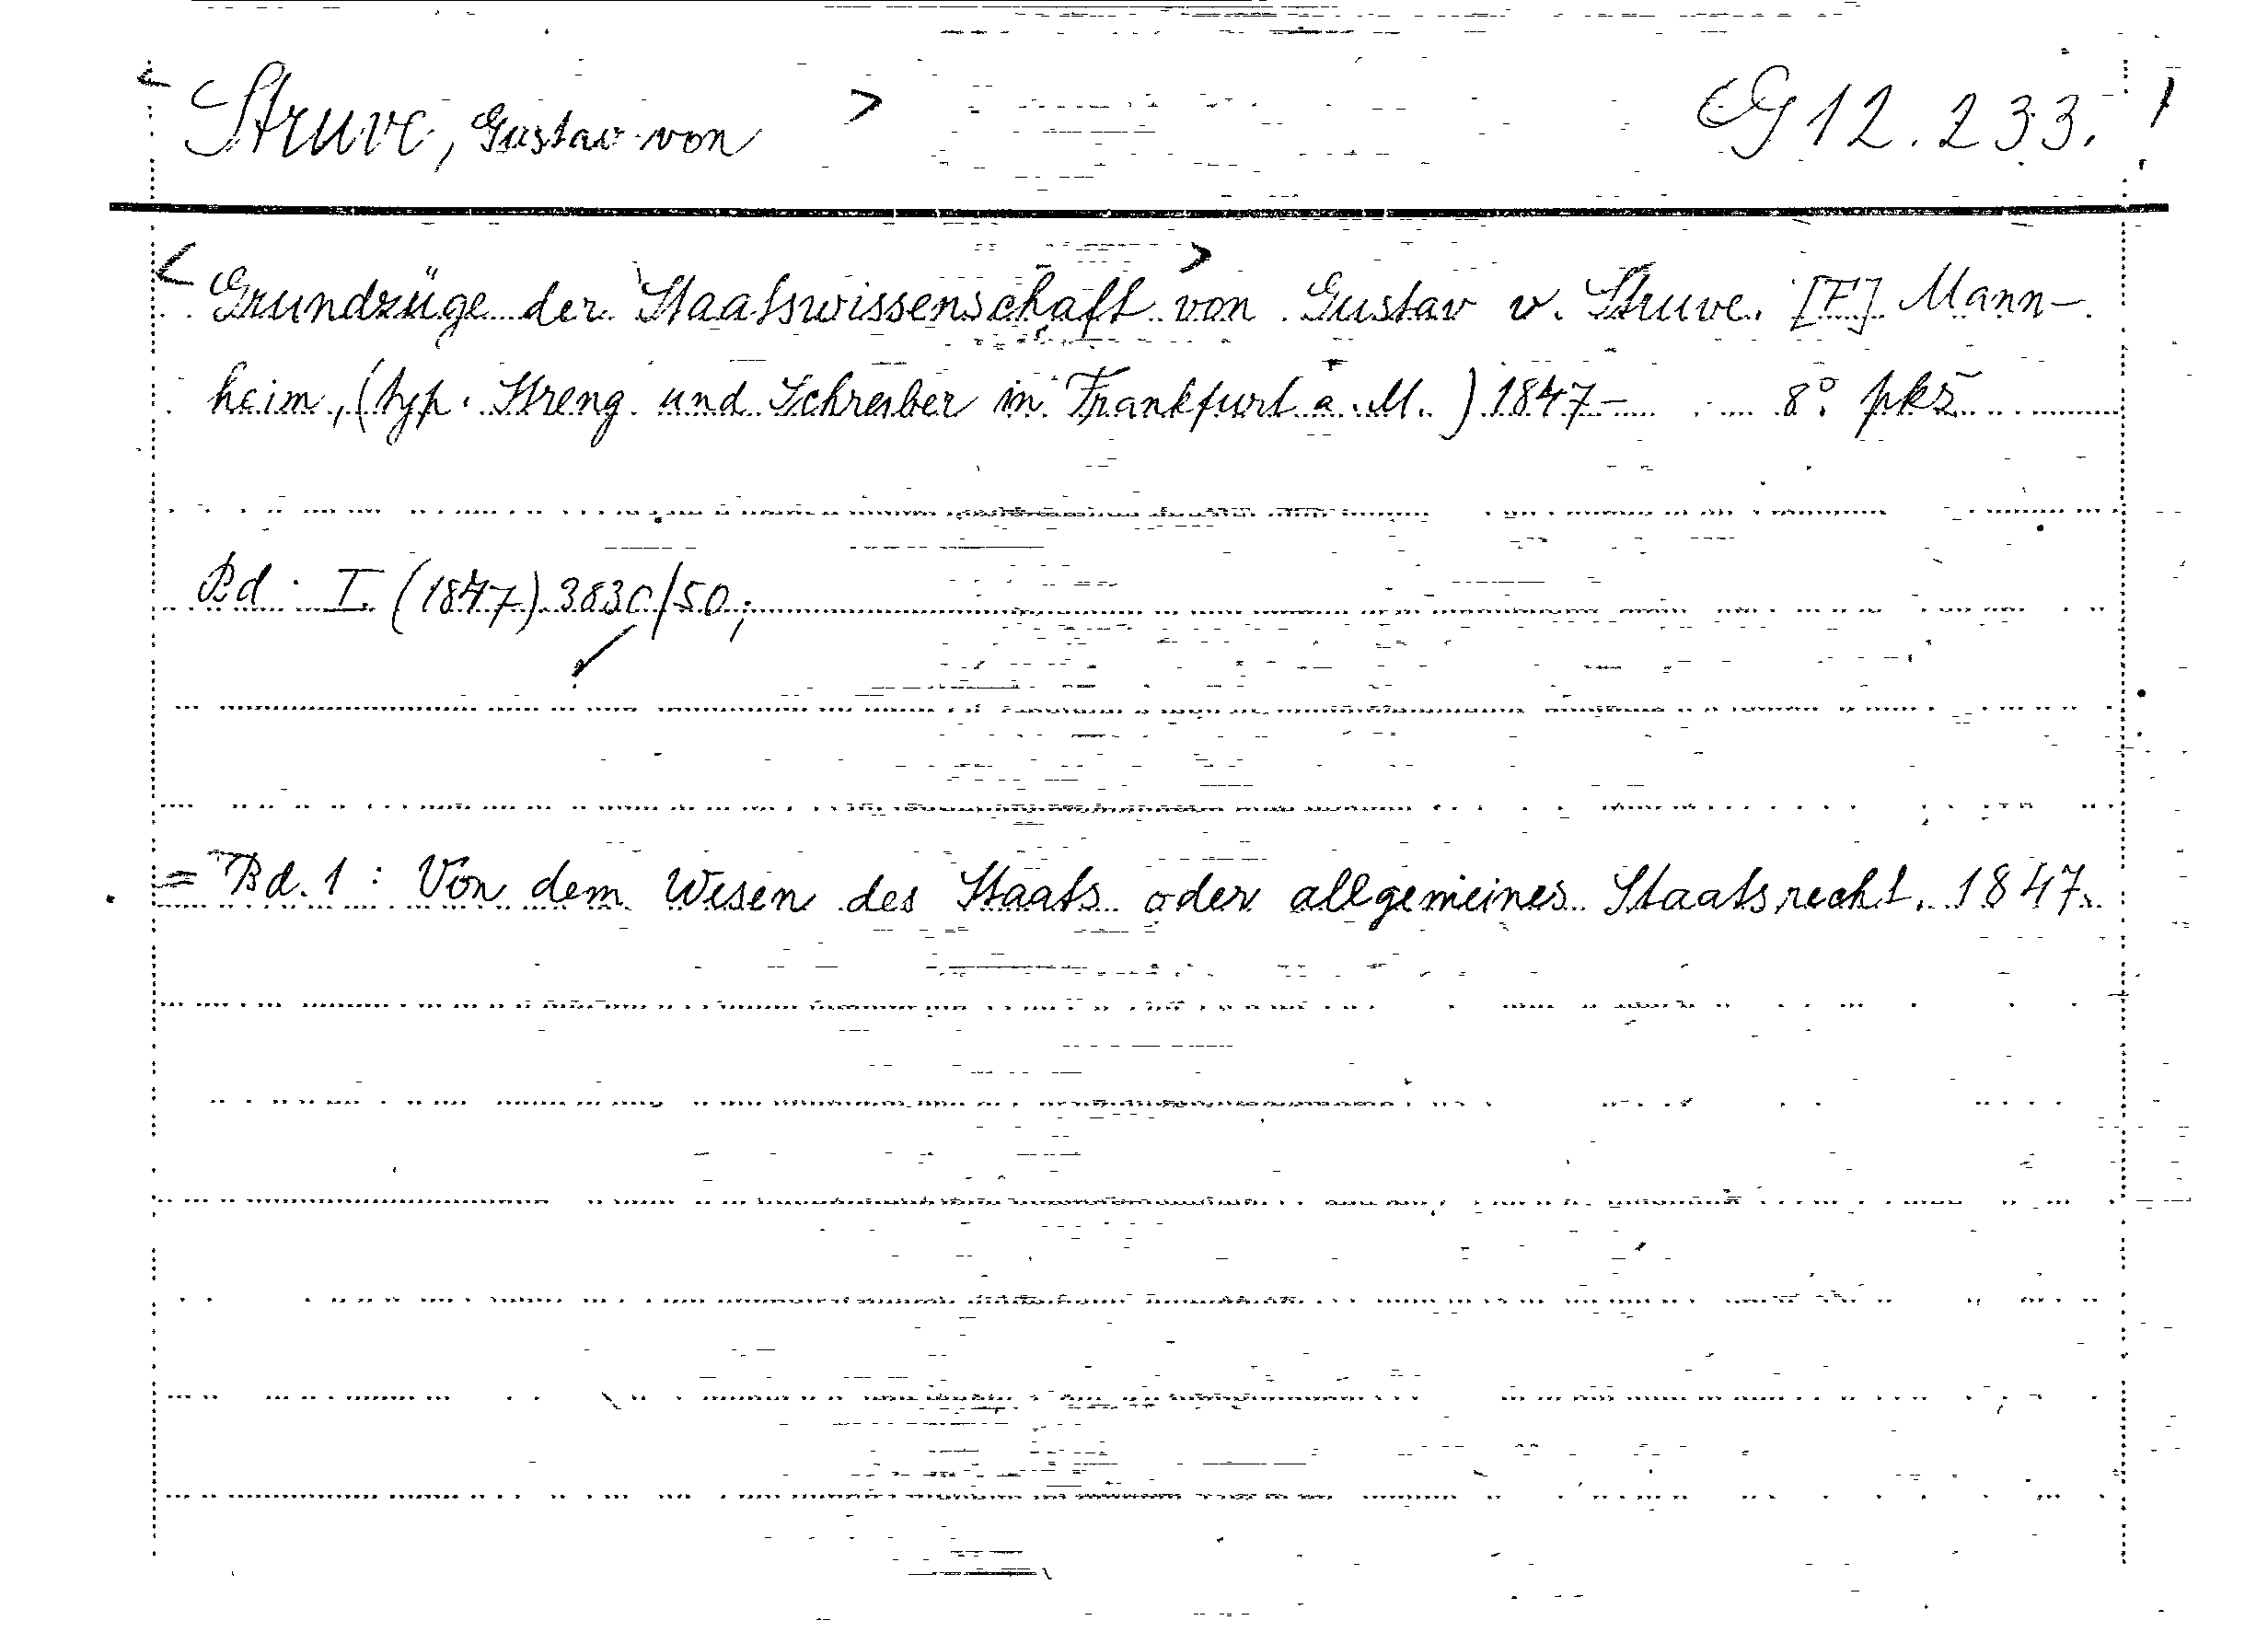 < Struve, Gustav von > G 12.233. !
< Grundzüge der Staatswissenschaft > von Gustav v. Struve. [F] Mann-
heim, (typ. Streng und Schreiber in Frankfurt a. M.) 1847- 8° pkš
Bd. I. (1847) 3830/50;
= Bd. 1: Von dem Wesen des Staats oder allgemeines Staatsrecht. 1847.